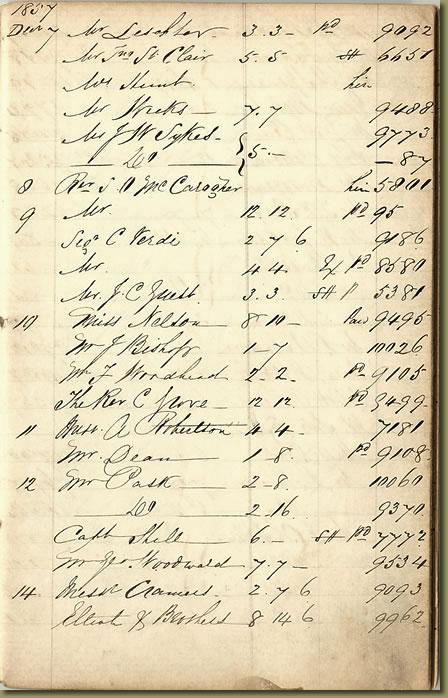 1857
Decr 7 Mr Leschter 3 . 3 . - Pd 9092
Mr Jno St Clair 5 . 5 SH 6651
Mrs Hunt hire
Mr Weeks 7 . 7 9488
Mr J W Sykes 9773
Do 5 . - 87
8 Rev S McCaragher hire 5801
9 Mr. 12 . 12 . Pd 95
Sigr C Verdi 2 7 6 9186
Mr. 4 4 Ex Pd 8580
Mr. J. C. Guest 3 . 3 . SH P 5381
10 Miss Nelson 8 10 - 9495
Mr J Bishop 1 - 7 10026
Mr F Woodhead 2 - 2 - Pd 9105
The Rev C Grove 12 12 Pd 9499
11 A Robertson 4 4 - 7181
Mr. Dean 1 . 8 . Pd 9108
12 Mr Pask 2 - 8 . 10060
Do 2 - 16 9370
Capt Shell 6 . - SH Pd 7772
Mr Geo Woodward 7 . 7 - 9534
14 Messr Cramers 2 . 7 6 9093
Elliot & Brothers 8 14 6 9962